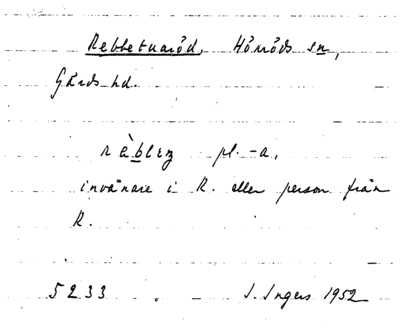 Rebbetuaröd, Hörröds sn,
Gärds hd.
räblıŋ pl. -a,
invånare i R. eller person från
R.
5233 . – I. Ingers 1952